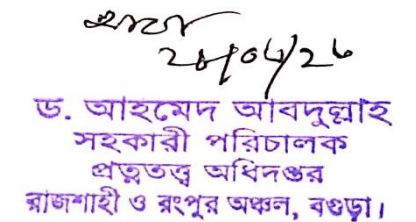 ড. আহমেদ আবদুল্লাহ
সহকারী পরিচালক
প্রত্নতত্ত্ব অধিদপ্তর
রাজশাহী ও রংপুর অঞ্চল, বগুড়া।